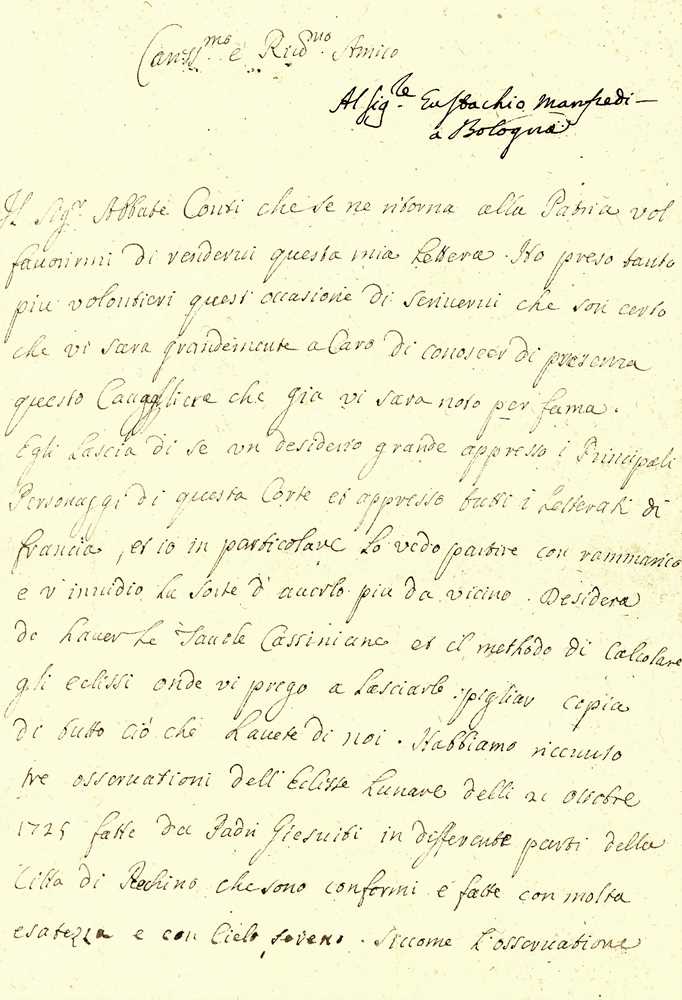 Cariss.mo e Riv.mo Amico
Al Sig.re Eustachio Manfredi—
a Bologna
Il Sig.r Abbate Conti che se ne ritorna alla Patria vol
favorirmi di rendervi questa mia Lettera. Ho preso tanto
piu volontieri quest occasione di scrivervi che son certo
che vi sara grandemente a Caro di conoscer di presenza
questo Cavagliere che gia vi sara noto per fama.
Egli Lascia di se un desiderio grande appresso i Principali
Personaggi di questa Corte et appresso tutti i Letterati di
francia, et io in particolare Lo vedo partire con rammarico
e v invidio La sorte d' averlo piu da vicino. Desidera
da Haver Le Tavole Cassiniane et il methodo di Calcolare
gli eclissi onde vi prego a Lasciarle pigliar copia
di tutto ciò che L'avete di noi. Habbiamo ricevuto
tre osservationi dell' Eclisse Lunare delli 21 Ottobre
1725 fatte da Padri Giesuiti in differente parti della
Citta di Pechino che sono conformi e fatte con molta
esatezza e con Cielo sereno. Siccome L'osservatione